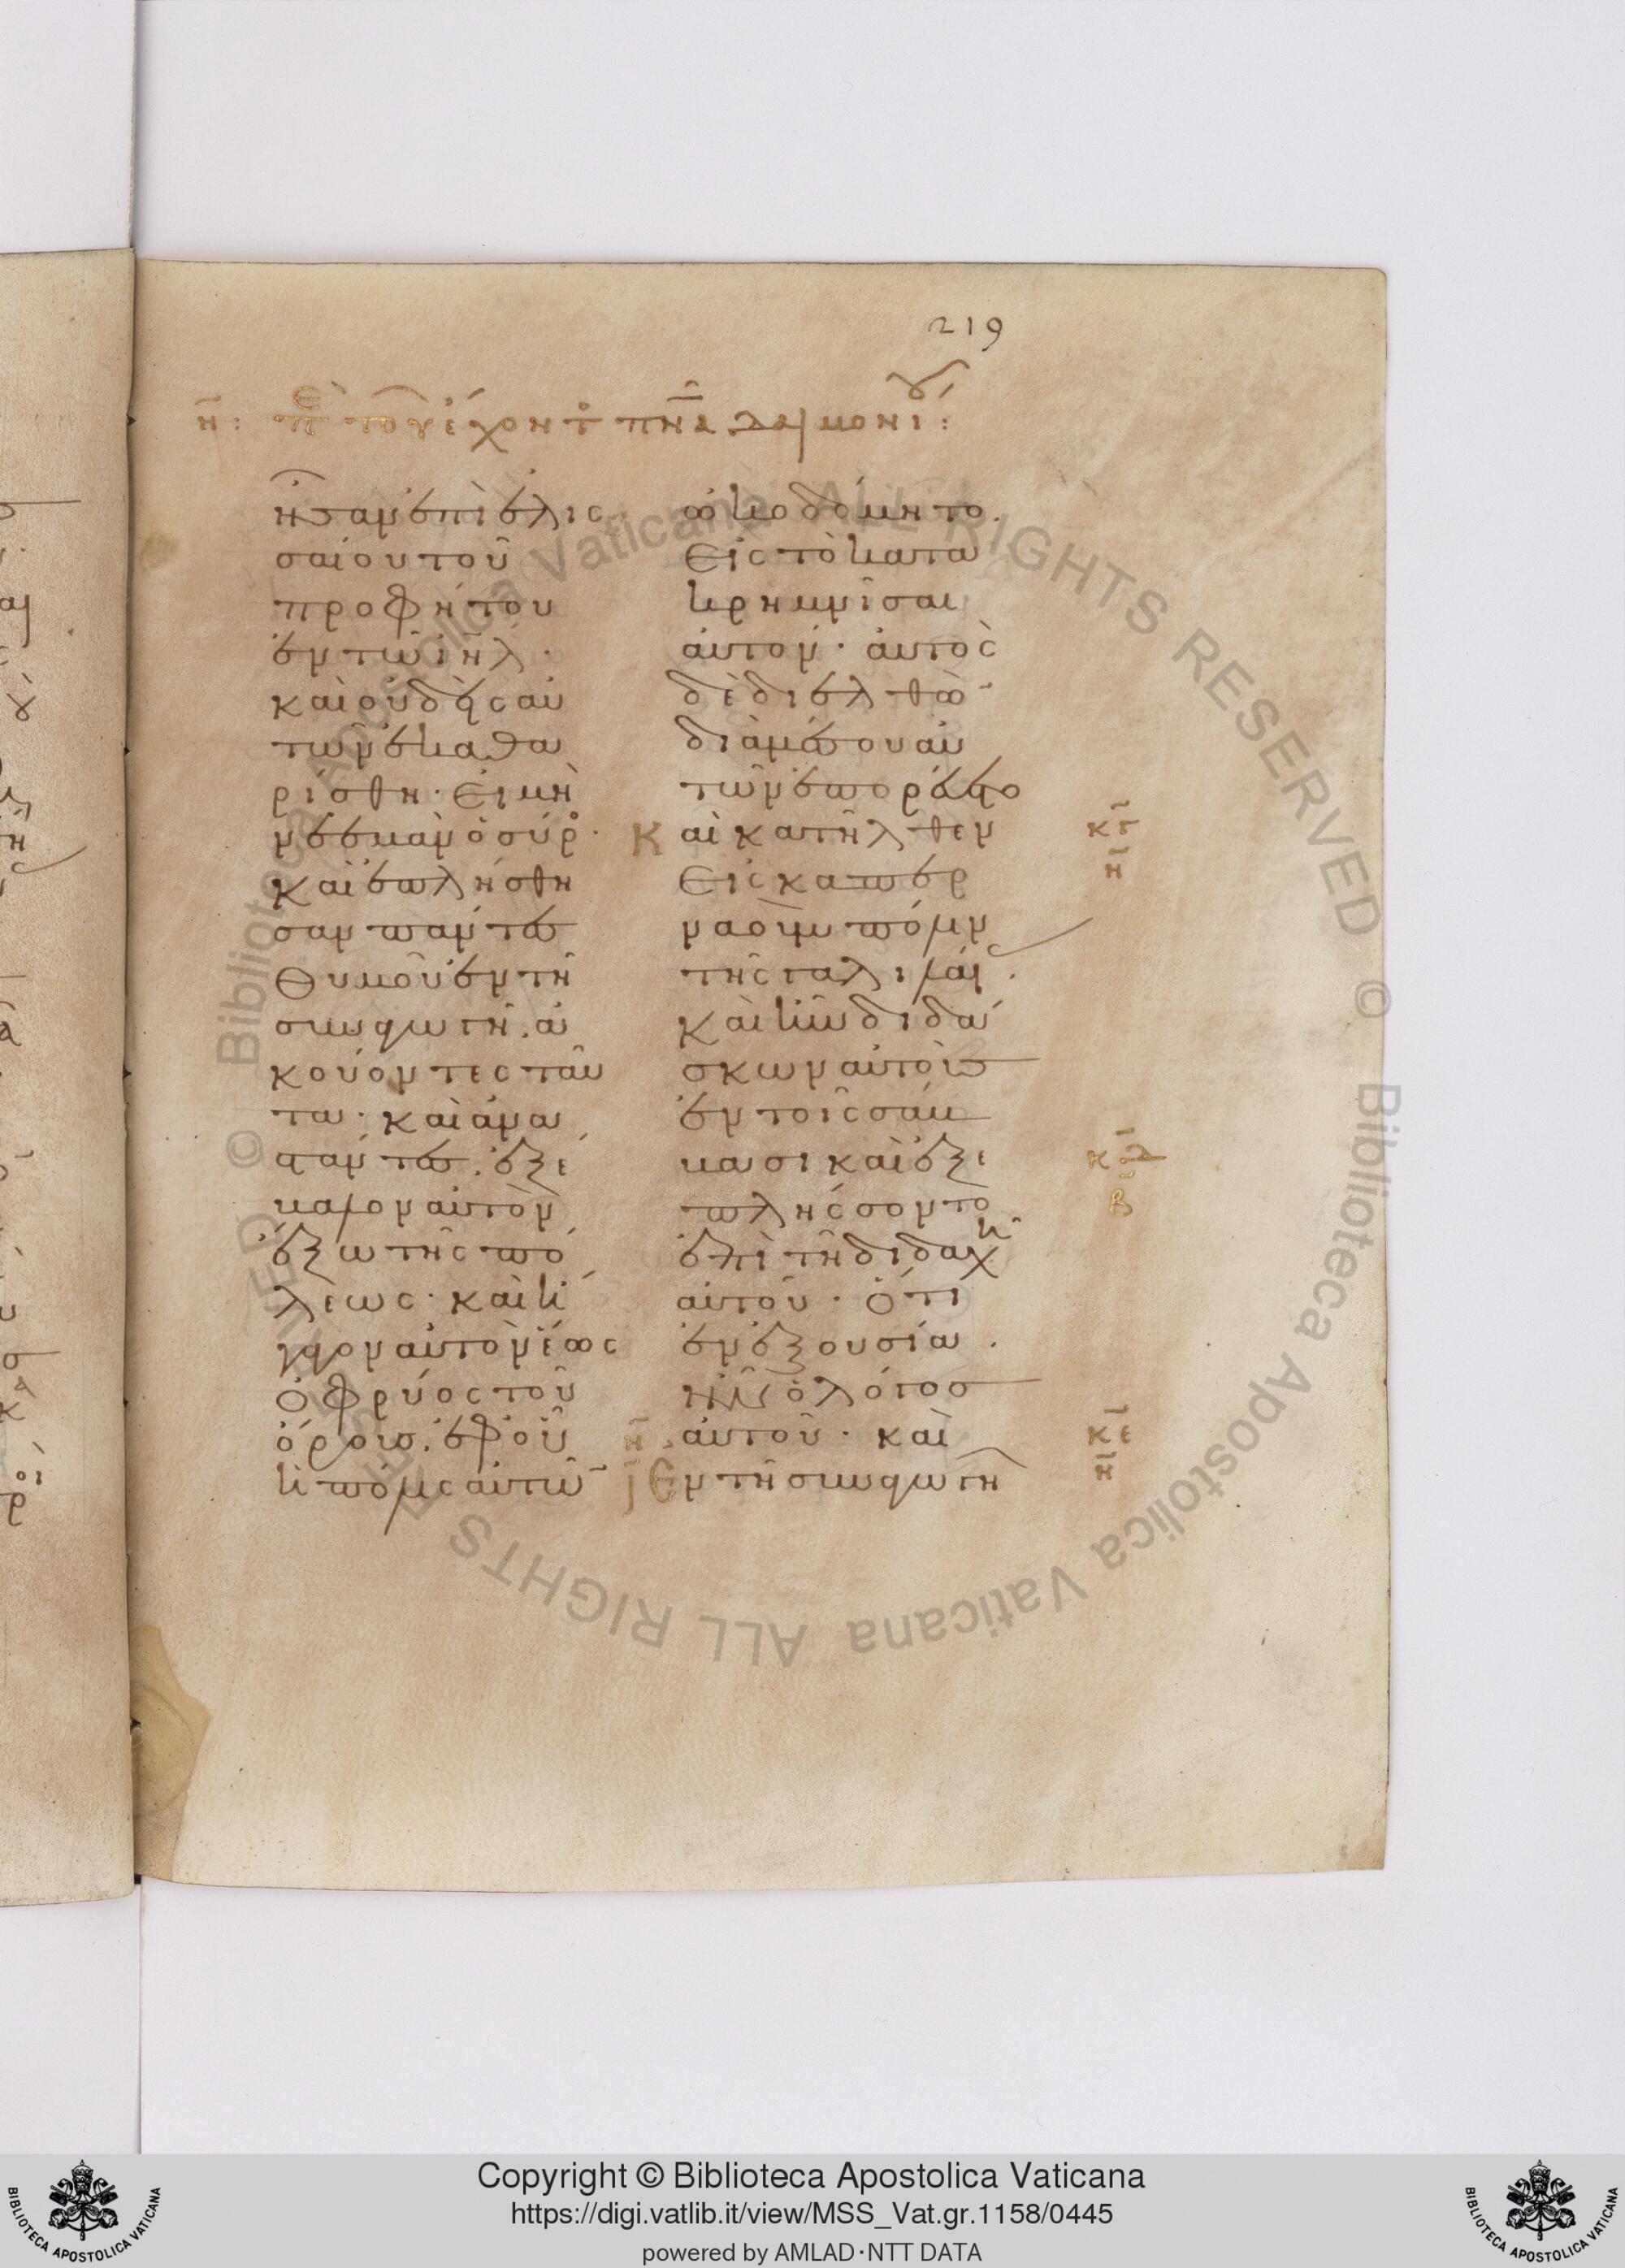 219
η̅: πε τοῦ ἔχοντο πν̅α δαιμονίου:
ἦσαν ἐπὶ ἐλισ
σαίου τοῦ
προφήτου
ἐν τῶ ιη̅λ·
καὶ οὐδεὶς αὐ
τῶν ἐκαθα
ρίσθη· εἰ μὴ
νεεμὰν ὁ σύρο·
καὶ ἐπλήσθη
σαν πάντες
θυμοῦ ἐν τῆ
συναγωγῆ. ἀ
κούοντες ταῦ
τα· καὶ ἀνα
στάντες. ἐξέ
βαλον αὐτὸν
ἔξω τῆς πό
λεως· καὶ ἤ
γαγον αὐτὸν ἕως
ὀφρύος τοῦ
ὄρους. ἐφ οὗ
ἡ πόλις αὐτῶν
ὠκοδόμητο.
εἰς τὸ κατα
κρημνίσαι
αὐτόν· αὐτὸς
δὲ διελθὼν
διὰ μέσου αὐ
τῶν ἐπορεύετο
Καὶ κατῆλθεν
εἰς καπερ
ναοὺμ πόλιν
τῆς γαλιλαίας.
καὶ ἦν διδά
σκων αὐτοὺς
ἐν τοῖς σάβ
βασι καὶ ἐξε
πλήσσοντο
ἐπὶ τῆ διδαχῆ
αὐτοῦ· ὅτι
ἐν ἐξουσία.
ἦν ὁ λόγος
αὐτοῦ· καὶ
Ἐν τῆ συναγωγῆ
κγ̅
η̅
κδ̅
β
κε̅
η̅
η̅
Biblioteca Apostolica Vaticana ALL RIGHTS RESERVED ©
Biblioteca Apostolica Vaticana ALL RIGHTS RESERVED ©
Copyright © Biblioteca Apostolica Vaticana
https://digi.vatlib.it/view/MSS_Vat.gr.1158/0445
powered by AMLAD·NTT DATA
BIBLIOTECA APOSTOLICA VATICANA
BIBLIOTECA APOSTOLICA VATICANA